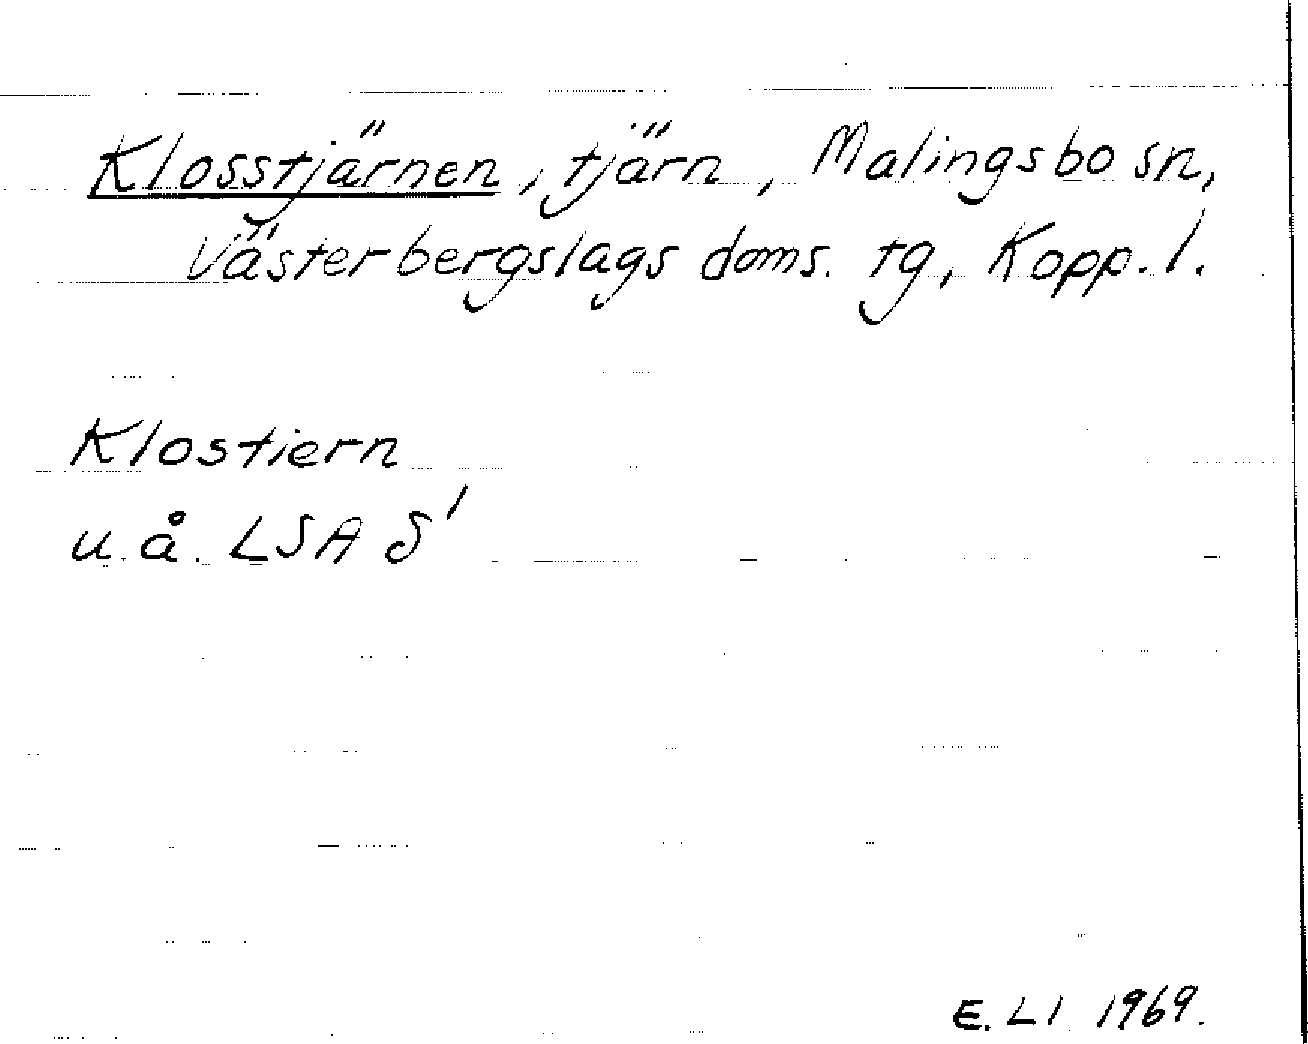 Klosstjärnen, tjärn, Malingsbo sn,
Västerbergslags doms. tg, Kopp. l.
Klostiern
u.å. LSA S'
E. LI 1969.